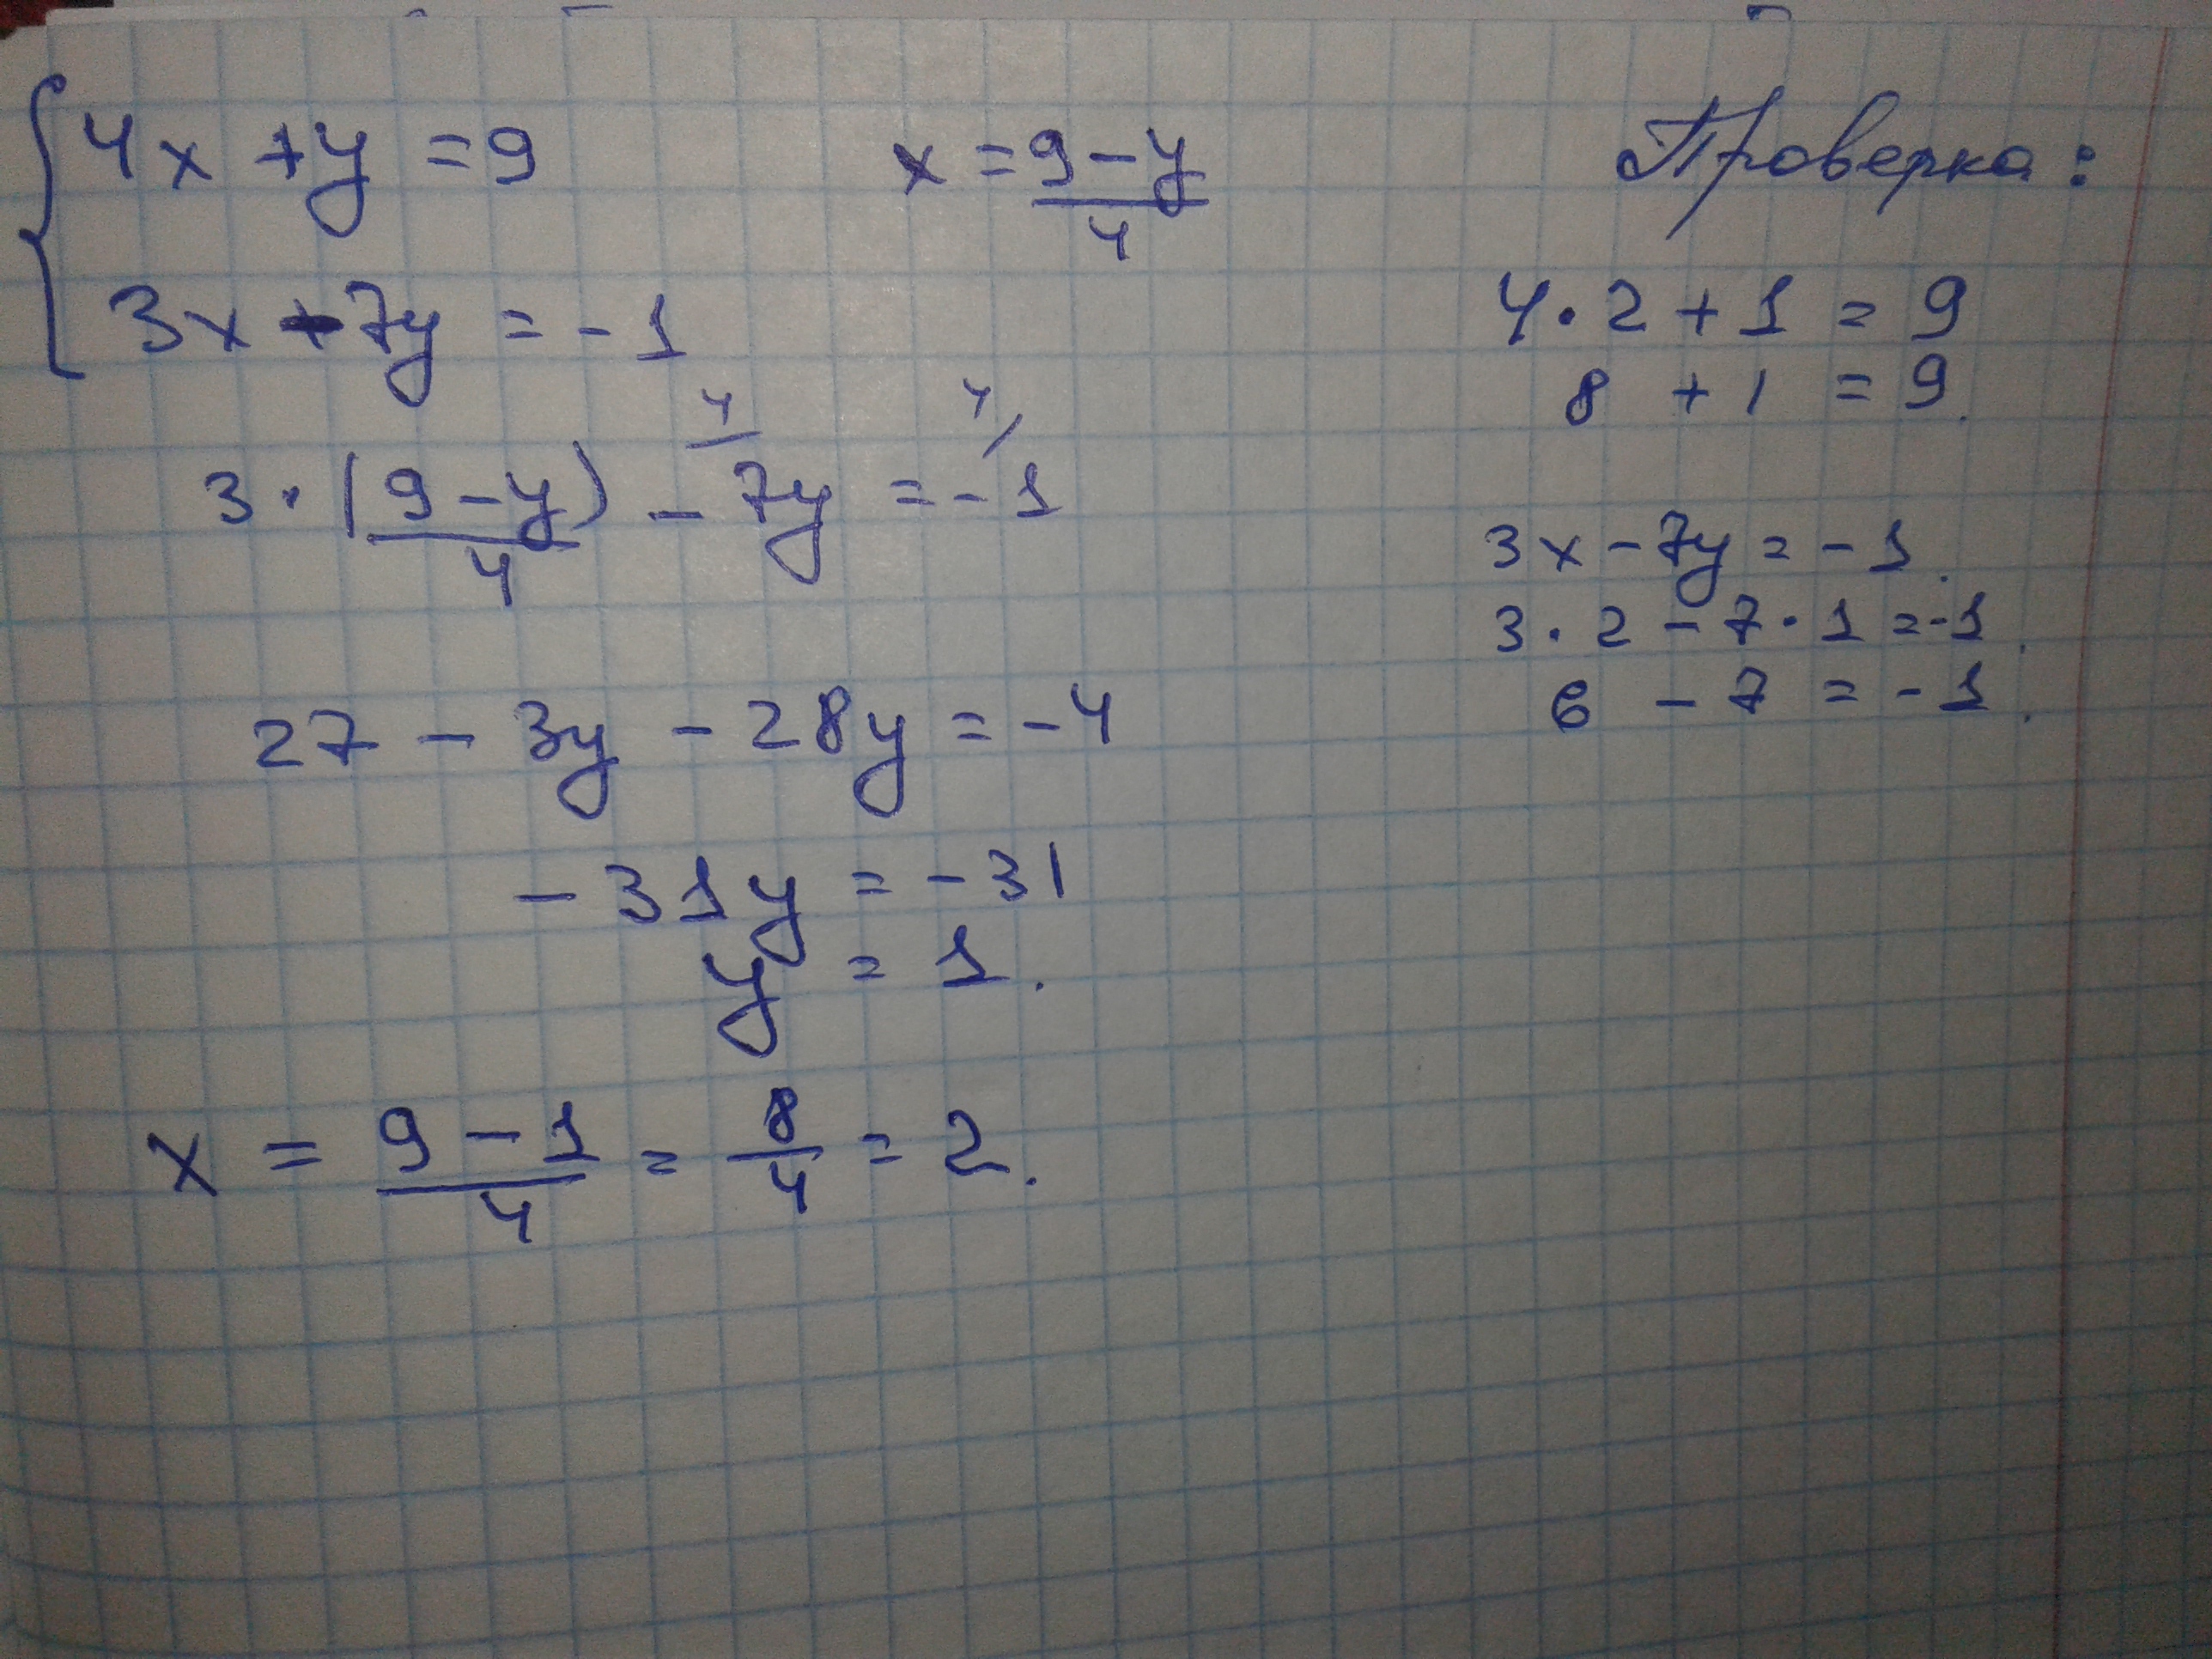 4x + y = 9
x = (9 - y)/4
3x - 7y = -1
3 · (9 - y)/4 - 7y = -1
4/ 4/
27 - 3y - 28y = -4
-31y = -31
y = 1.
x = (9 - 1)/4 = 8/4 = 2.
Проверка:
4 · 2 + 1 = 9
8 + 1 = 9.
3x - 7y = -1.
3 · 2 - 7 · 1 = -1.
6 - 7 = -1.